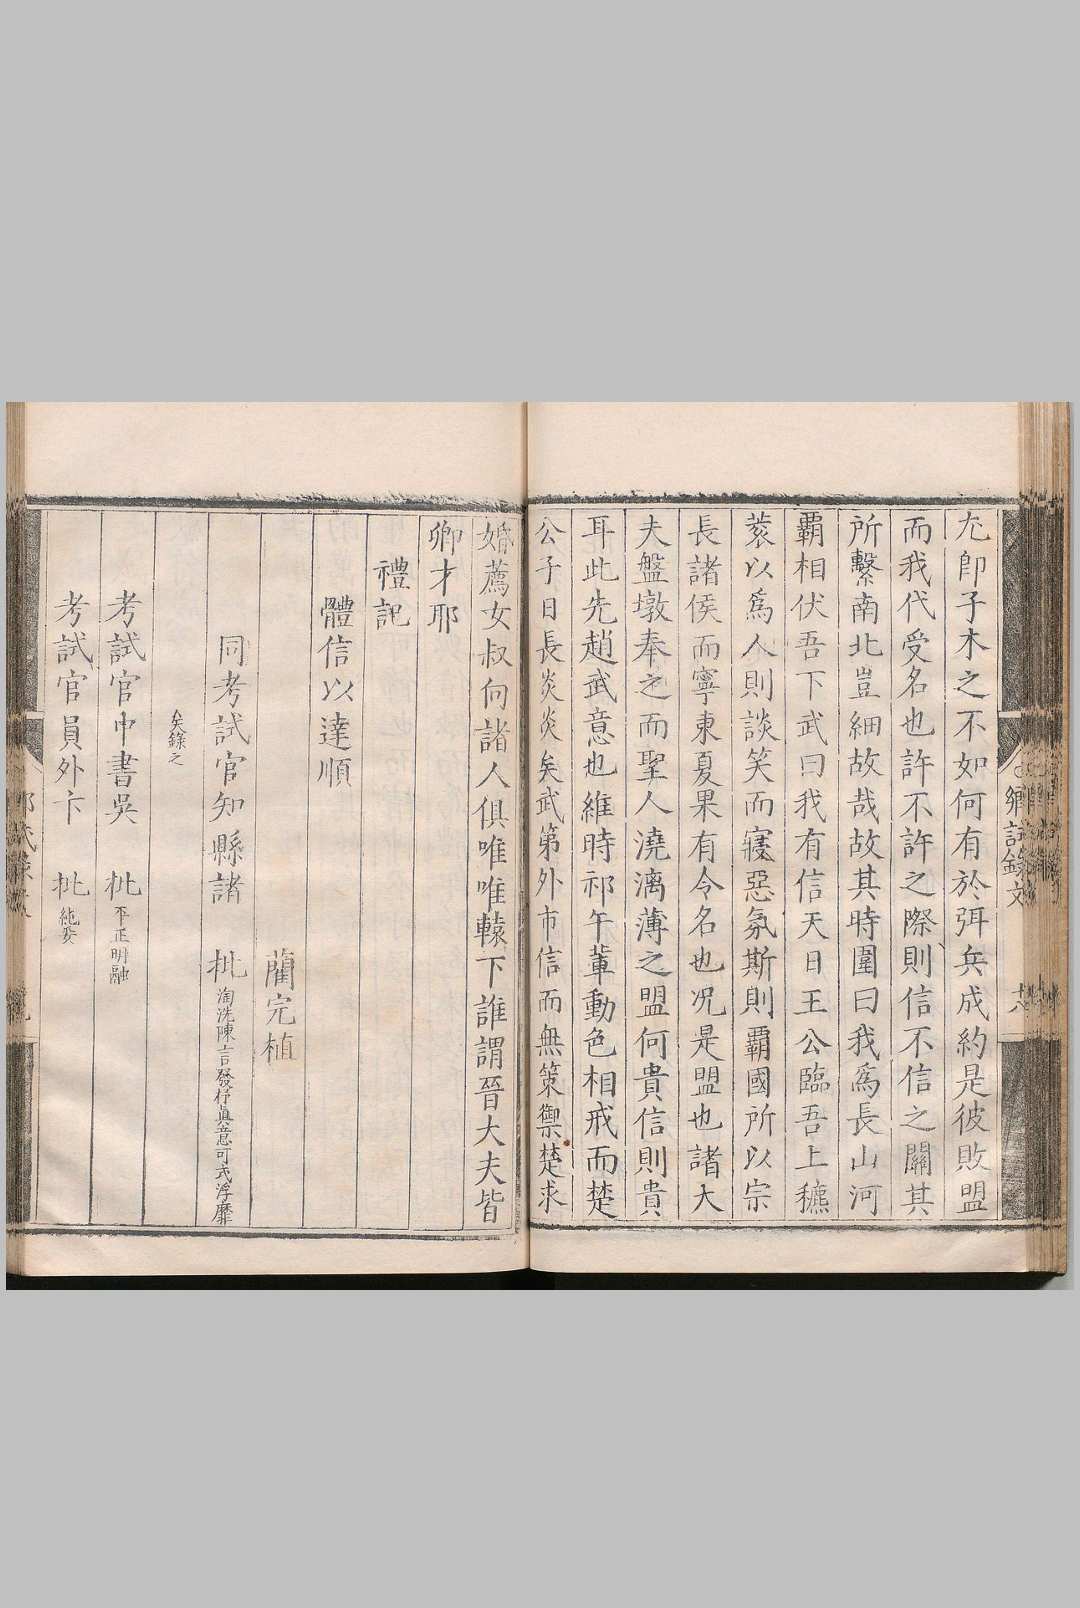 尤卽子木之不如何有於弭兵成約是彼敗盟
而我代受名也許不許之際則信不信之關其
所繫南北豈細故哉故其時圍曰我爲長山河
霸相伏吾下武曰我有信天日王公臨吾上穮
蔉以爲人則談笑而寢惡氛斯則霸國所以宗
長諸侯而寧東夏果有令名也况是盟也諸大
夫盤墩奉之而聖人澆漓薄之盟何貴信則貴
耳此先趙武意也維時祁午輩動色相戒而楚
公子日長炎炎矣武第外市信而無策禦楚求
婚薦女叔向諸人俱唯唯轅下誰謂晉大夫皆
卿才耶
禮記
體信以達順
藺完植
同考試官知縣諸 批 淘洗陳言發抒眞意可式浮靡
矣錄之
考試官中書吳 批 平正明融
考試官員外卞 批 純妥
鄉試錄文
十八